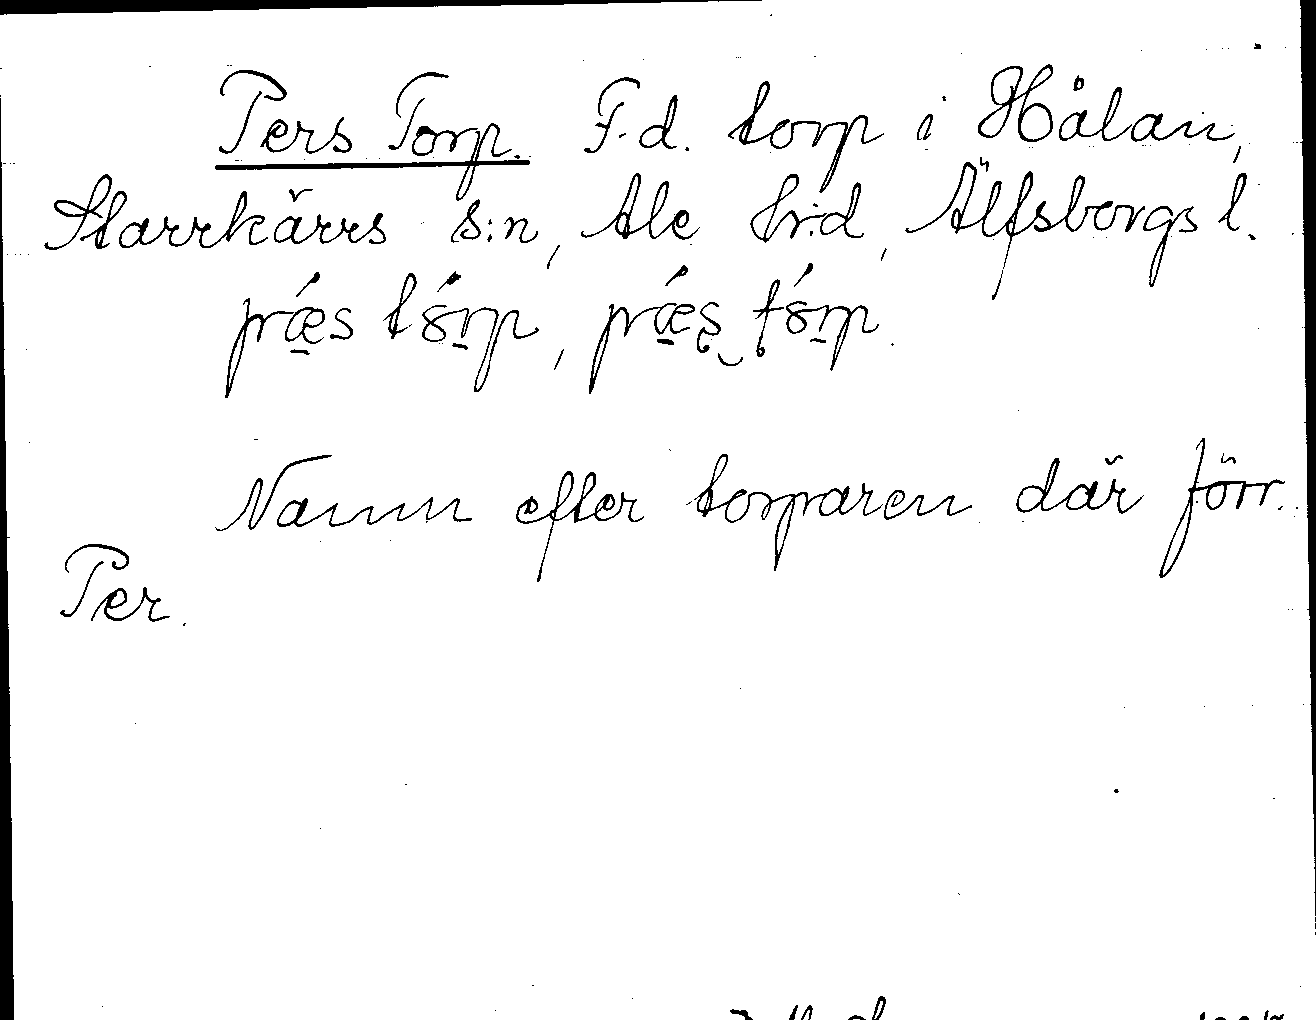 Pers Torp. F.d. torp i Hålan,
Starrkärrs s:n, Ale hr:d, Älfsborgs l.
Namn efter torparen där förr.
Per.